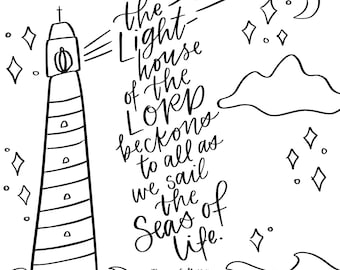 the
Light-
house
of the
LORD
beckons
to all as
we sail
the
Seas of
life.